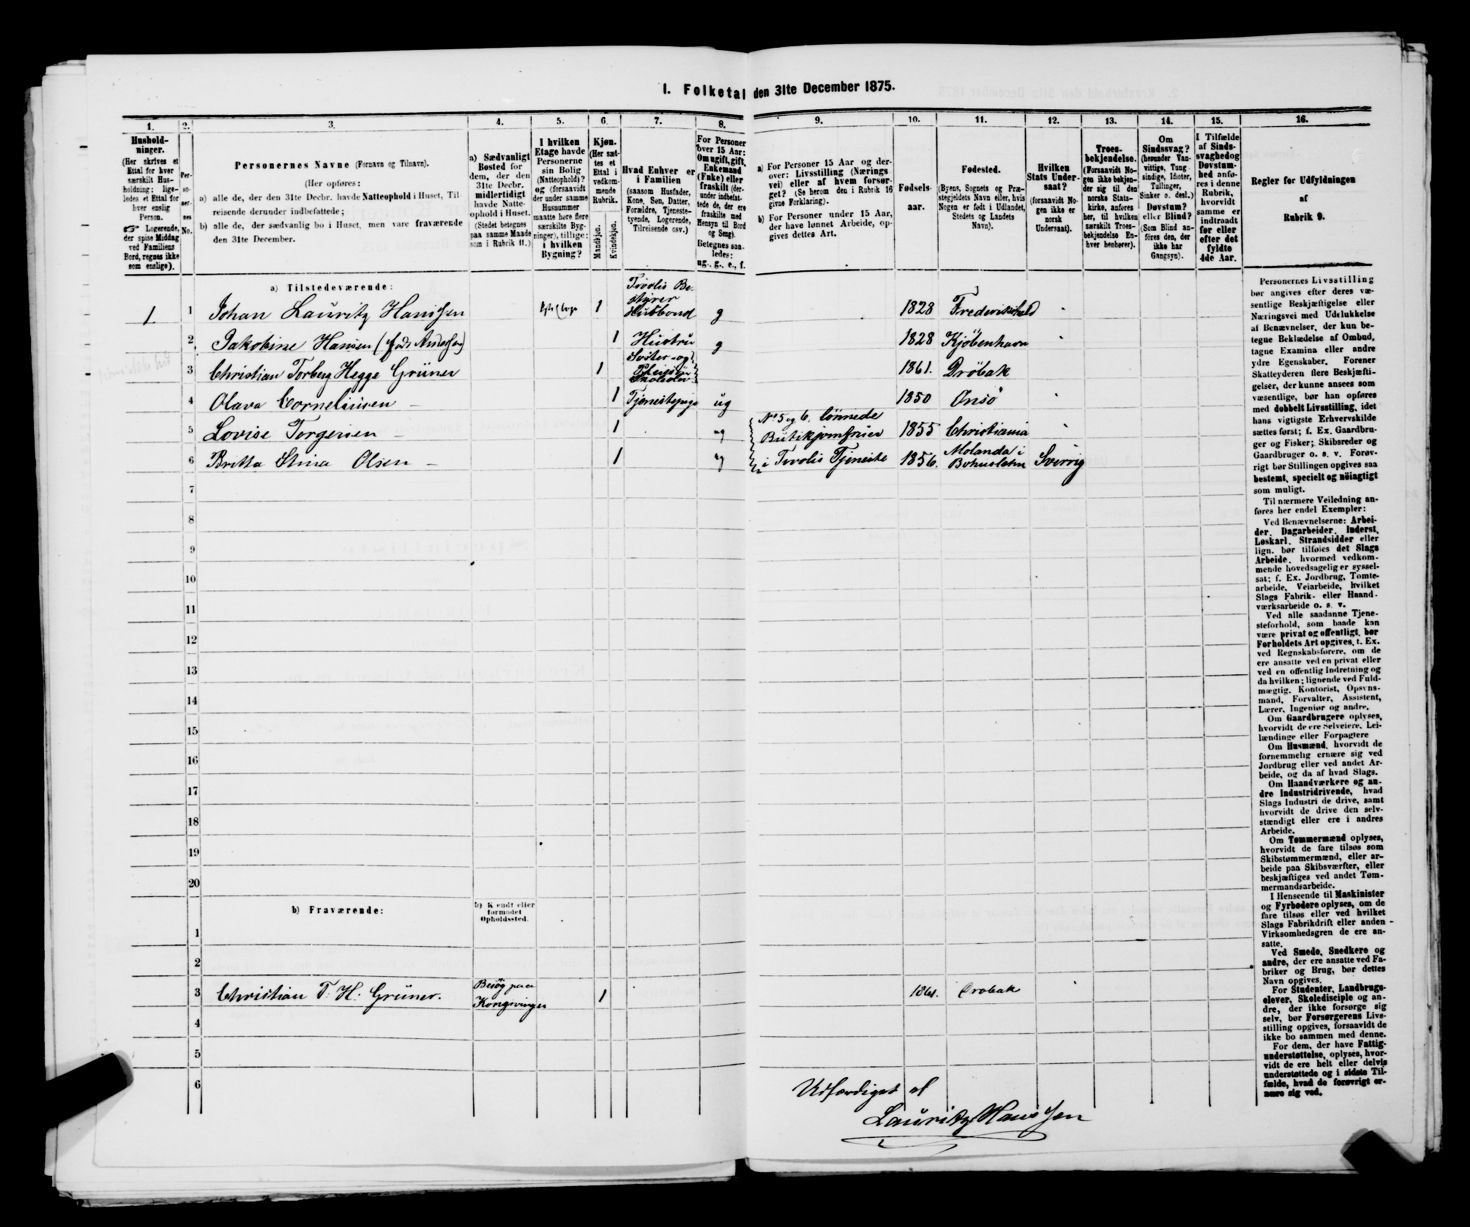 I. Folketal den 31te December 1875.
1.
2.
3.
4.
5.
6.
7.
8.
9.
10.
11.
12.
13.
14.
15.
16.
Hushold-
ninger.
(Her skrives et
Ettal for hver
særskilt Hus-
holdning; lige-
ledes et Ettal for
hver enslig
Person.
☞ Logerende,
der spise Middag
ved Familiens
Bord, regnes ikke
som enslige).
Per-
soner-
nes
No.
Personernes Navne (Fornavn og Tilnavn).
(Her opføres:
a) alle de, der den 31te Decbr. havde Natteophold i Huset, Til-
reisende derunder indbefattede;
b) alle de, der sædvanlig bo i Huset, men vare fraværende
den 31te December.
a) Sædvanligt
Bosted for
dem, der den
31te Decbr.
midlertidigt
havde Natte-
ophold i Huset.
(Stedet betegnes
paa samme Maade
som i Rubrik 11.)
I hvilken
Etage havde
Personerne
sin Bolig
(Natteophold)?
og (forsaavidt
der under samme
Husnummer
maatte høre flere
særskilte Byg-
ninger), tillige:
i hvilken
Bygning?
Kjøn.
(Her sæt-
tes et
Ettal i
vedkom-
mende
Rubrik.
Mandkjøn.
Kvindekjøn.
Hvad Enhver er
i Familien
(saasom Husfader,
Kone, Søn, Datter,
Forældre, Tjeneste-
tyende, Logerende,
Tilreisende osv.)
For Personer
over 15 Aar:
Om ugift, gift,
Enkemand
(Enke) eller
fraskilt (der-
under indbefat-
tede de, der ere
fraskilte med
Hensyn til Bord
og Seng).
Betegnes saa-
ledes:
ug., g., e., f.
a) For Personer 15 Aar og der-
over: Livsstilling (Nærings
vei) eller af hvem forsør-
get? (Se herom den i Rubrik 16
givne Forklaring).
b) For Personer under 15 Aar,
der have lønnet Arbeide, op-
gives dettes Art.
Fødsels-
aar.
Fødested.
(Byens, Sognets og Præ-
stegjeldets Navn eller, hvis
Nogen er født i Udlandet,
Stedets og Landets
Navn).
Hvilken
Stats Under-
saat?
(forsaavidt No-
gen ikke er
norsk
Undersaat).
Troes-
bekjendelse.
(Forsaavidt No-
gen ikke bekjen-
der sig til den
norske Stats-
kirke, anføres
her, til hvilken
særskilt Troes-
bekjendelse En-
hver henhører).
Om
Sindssvag?
(herunder Van-
vittige, Tung-
sindige, Idioter,
Tullinger,
Sinker o. desl.)
Døvstum?
eller Blind?
(Som Blind an-
føres den, der
ikke har
Gangsyn).
I Tilfælde
af Sinds-
svaghed og
Døvstum-
hed anfø-
res i denne
Rubrik,
hvorvidt
samme er
indtraadt
før eller
efter det
fyldte
4de Aar.
Regler for Udfyldningen
af
Rubrik 9.
a) Tilstedeværende:
1 1 Johan Lauritz Hanssen 1 Tivolis Be-
styrer
Husbond g 1828 Frederikshald
2 Jakobine Hansen (født Andersen) 1 Hustru g 1828 Kjöbenhavn
3 Christian Torberg Hegge Grüner 1 Söster-og
Pleiesön 1861. Dröbak
4 Olava Cornelinsen 1 Tjenestepige ug 1850 Onsö
5 Lovise Torgersen 1 ug No 5 og 6. lönnede
Butikjomfruer 1855 Christiania
6 Britta Stina Olsen 1 ug i Tivolis Tjeneste 1856. Molandal i
Bohuslehn Sverrig
7
8
9
10
11
12
13
14
15
16
17
18
19
20
b) Fraværende:
b) Kjendt eller
formodet
Opholdssted.
1
2
3 Christian T. H. Grüner. Besög paa
Kongsvinger 1 1861. Dröbak
4
5
6
Udfærdiget af
Lauritz Hanssen
Personernes Livsstilling
bør angives efter deres væ-
sentlige Beskjæftigelse eller
Næringsvei med Udelukkelse
af Benævnelser, der kun be-
tegne Beklædelse af Ombud,
tagne Examina eller andre
ydre Egenskaber. Forener
Skatteyderen flere Beskjæfti-
gelser, der kunne ansees som
væsentlige, bør han opføres
med dobbelt Livsstilling, idet
hans vigtigste Erhvervskilde
sættes først; f. Ex. Gaardbru-
ger og Fisker; Skibsreder og
Gaardbruger o. s. v. Forøv-
rigt bør Stillingen opgives saa
bestemt, specielt og nöiagtigt
som muligt.
Til nærmere Veiledning an-
føres her endel Exempler:
Ved Benævnelserne: Arbei-
der, Dagarbeider, Inderst,
Løskarl, Strandsidder eller
lign. bør tilføies det Slags
Arbeide, hvormed vedkom-
mende hovedsagelig er syssel-
sat; f. Ex. Jordbrug, Tomte-
arbeide, Veiarbeide, hvilket
Slags Fabrik- eller Haand-
værksarbeide o. s. v.
Ved alle saadanne Tjene-
steforhold, som baade kan
være privat og offentligt, bør
Forholdets Art opgives, f. Ex.
ved Regnskabsførere, om de
ere ansatte ved en privat eller
ved en offentlig Indretning og
da hvilken; lignende ved Fuld-
mægtig, Kontorist, Opsyns-
mand, Forvalter, Assistent,
Lærer, Ingeniør og andre.
Om Gaardbrugere oplyses,
hvorvidt de ere Selveiere, Lei-
lændinge eller Forpagtere
Om Husmænd, hvorvidt de
fornemmelig ernære sig ved
Jordbrug eller ved andet Ar-
beide, og da af hvad Slags.
Om Haandværkere og an-
dre Industridrivende, hvad
Slags Industri de drive, samt
hvorvidt de drive den selv-
stændigt eller ere i andres
Arbeide.
Om Tømmermænd oplyses,
hvorvidt de fare tilsøs som
Skibstømmermænd, eller ar-
beide paa Skibsværfter, eller
beskjæftiges ved andet Tøm-
mermandsarbeide.
I Henseende til Maskinister
og Fyrbødere oplyses, om de
fare tilsøs eller ved hvilket
Slags Fabrikdrift eller anden
Virksomhedsgren de ere an-
satte.
Ved Smede, Snedkere og
andre, der ere ansatte ved Fa-
briker og Brug, bør dettes
Navn opgives.
For Studenter, Landbrugs-
elever, Skoledisciple og an-
dre, der ikke forsørge sig
selv, bør Forsørgerens Livs-
stilling opgives, forsaavidt de
ikke bo sammen med denne.
For dem, der have Fattig-
understøttelse, oplyses, hvor-
vidt de ere helt eller delvis
understøttede og i sidste Til-
fælde, hvad de forøvrigt er-
nære sig ved.